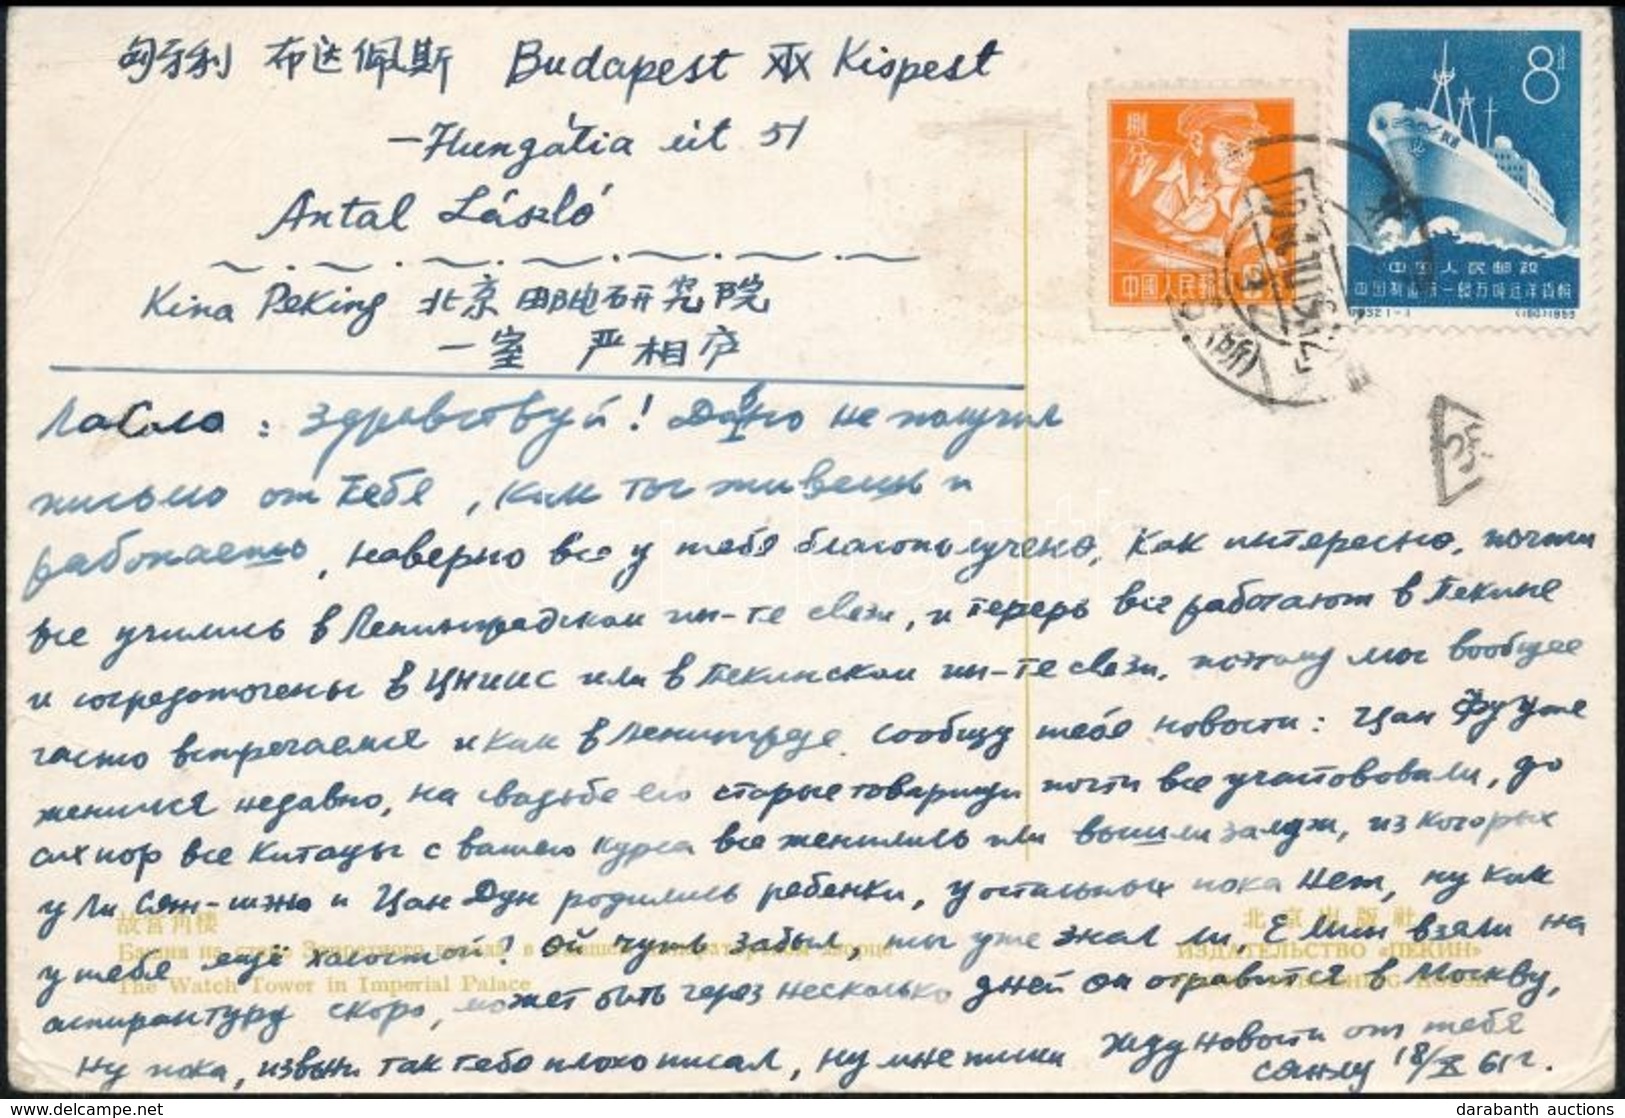 匈牙利 布达佩斯 Budapest XIX Kispest
—Hungária út 51
Antal László
Kina Peking 北京邮电研究院
一室 严相庐
捌分
中國人民郵政
8
中国人民邮政
1959
Ласло: Здравствуй! Давно не получил
письмо от тебя, как ты живёшь и
работаешь, наверно все у тебя благополучено, как интересно, почти
все учились в Ленинградском ин-те связи, и теперь все работают в Пекине
и сосредоточены в ЦНИИС или в Пекинском ин-те связи, поэтому мы вообщее
часто встречаемся и как в Ленинграде. сообщу тебе новости: Цан Фу уже
женился недавно, на свадьбе его старые товарищи почти все участвовали, до
сих пор все китайцы с вашего курса все женились или вышли замуж, из которых
у Ли Сян-шэна и Цан Дун родились ребенки, у остальных пока нет, ну как
故宫角楼
北京出版社
у тебя ещё холостой? Ой чуть забыл, ты уже знал ли, Е Мин взяли на
The Watch Tower in Imperial Palace
ИЗДАТЕЛЬСТВО «ПЕКИН»
аспирантуру скоро, может быть через несколько дней он отравится в Москву,
ну пока, извини так тебе плохо писал, ну мне пиши жду новости от тебя
18/X 61 г.
delcampe.net
darabanth auctions